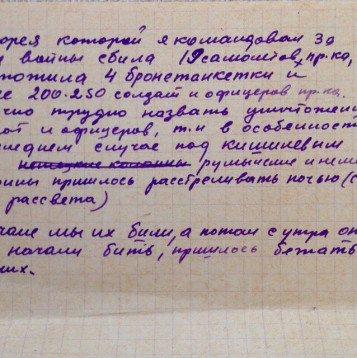 орея которой я командовал за
войны сбила 19 самолётов пр-ка,
тожила 4 бронетанкетки и
200-250 солдат и офицеров пр-ка.
чно трудно назвать уничтожен
от и офицеров, т.к в особенност
следнем случае под кишинёвым
немецкие колонны румынские и неме
онны пришлось расстреливать ночью (с
рассвета)
чале мы их били, а потом с утра он
начали бить, пришлось бежать
их.